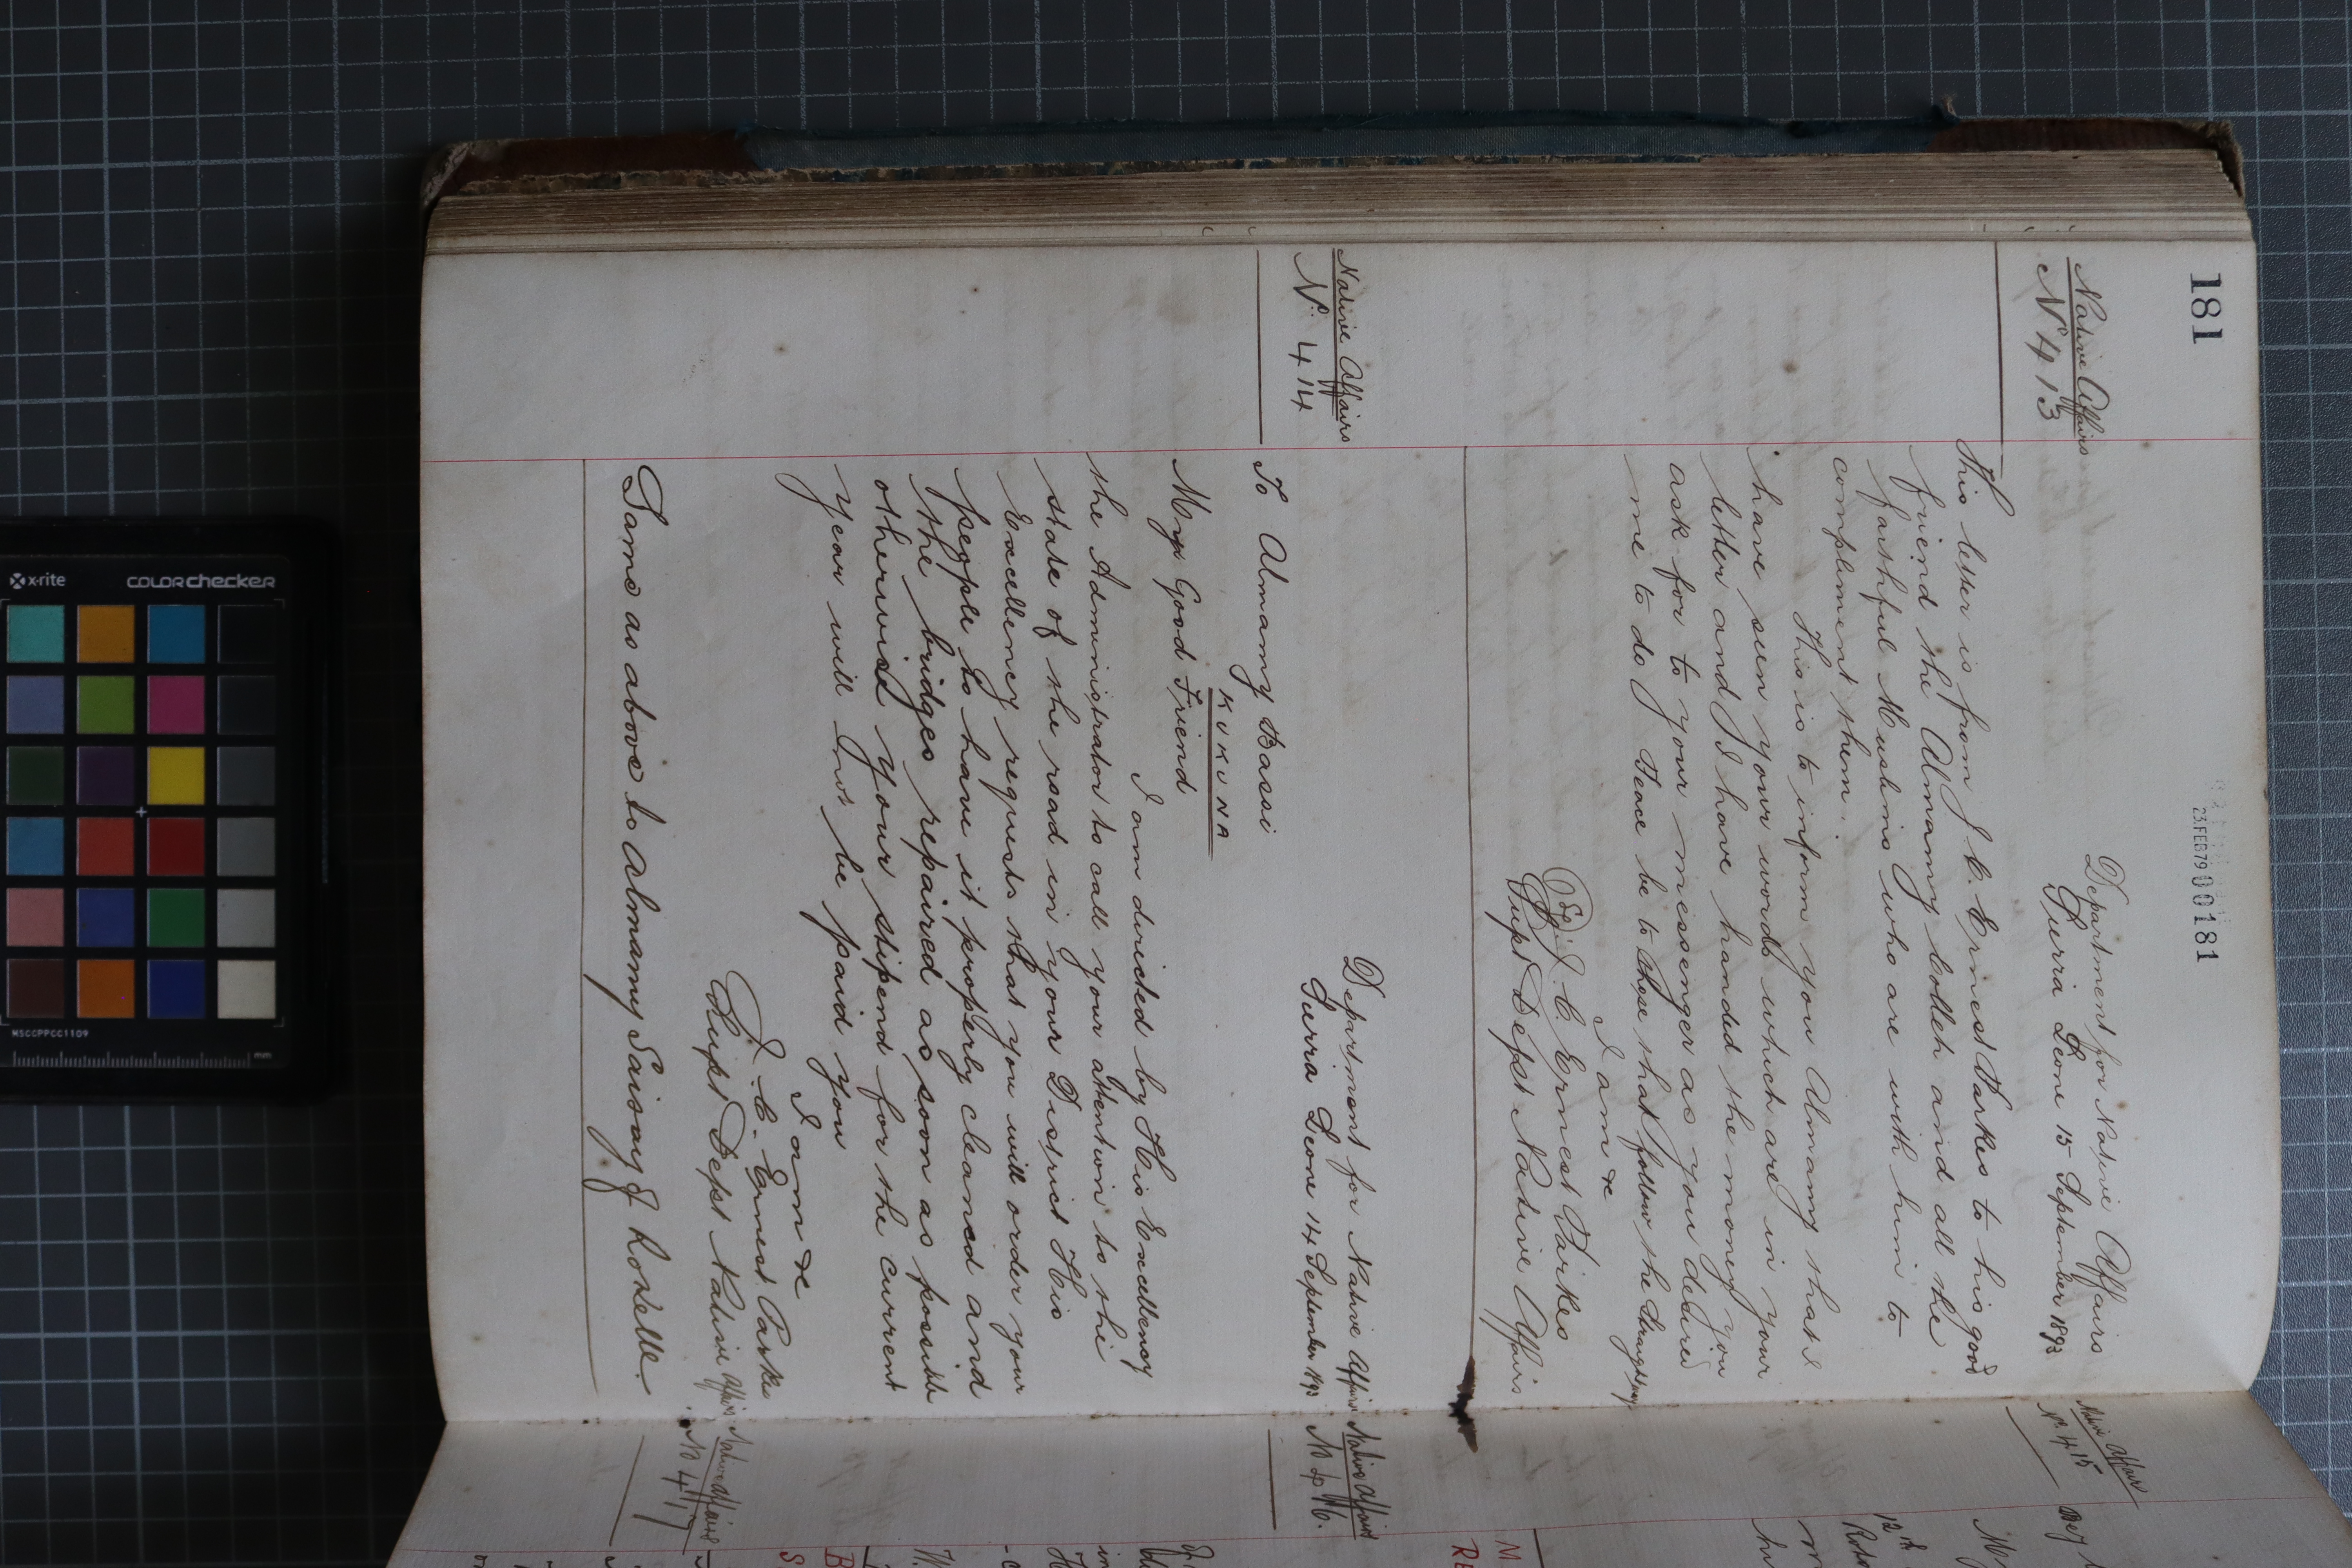 181
23.FEB79 000181
Native Affairs
No 413
Department for Native Affairs
Sierra Leone 15 September 1893
This letter is from J. C. Ernest Parkes to his good
friend the Almamy Colleh and all the
faithful Muslims who are with him to
compliment them.
This is to inform you Almamy that I
have seen your words which are in your
letter and I have handed the money you
ask for to your messenger as you desired
me to do Peace be to those that follow the straight way
I am &c
(Sgd) J. C. Ernest Parkes
Supt Dept Native Affairs
Native Affairs
No 414
Department for Native Affairs
Sierra Leone 14 September 1893
To Almamy Bassi
KUKUNA
My Good Friend
I am directed by His Excellency
the Administrator to call your attention to the
state of the road in your District His
Excellency requests that you will order your
people to have it properly cleaned and
the bridges repaired as soon as possible
otherwise your stipend for the current
year will not be paid you
I am &c
J. C. Ernest Parkes
Supt Dept Native Affairs
Same as above to Almamy Saisay of Rokelle.
Native Affairs
No 415
Native Affairs
No 416.
Native Affairs
No 417
12th
x-rite
colorchecker
MSCCPPCC1109
mm